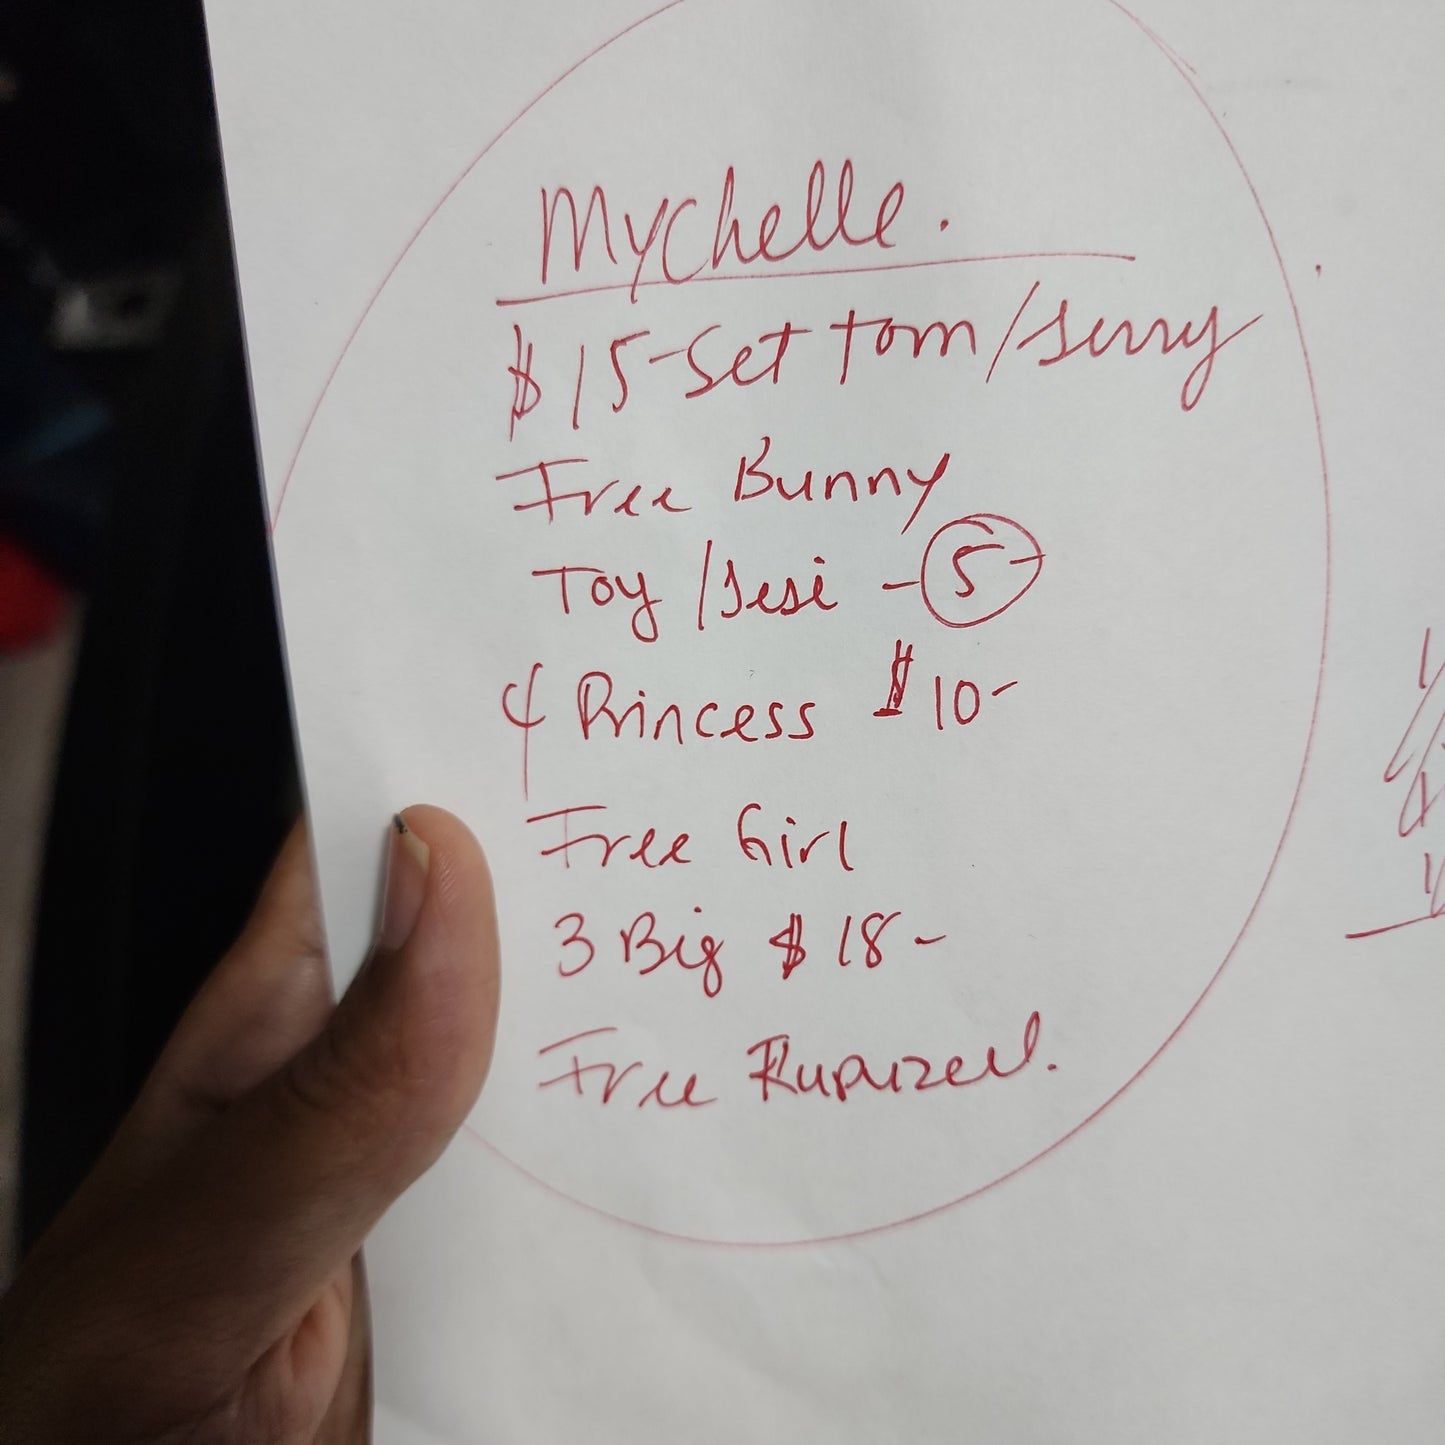 Mychelle.
$15-Set Tom/Jerry
Free Bunny
Toy/Jesi - 5-
4 Princess $10-
Free Girl
3 Big $18-
Free